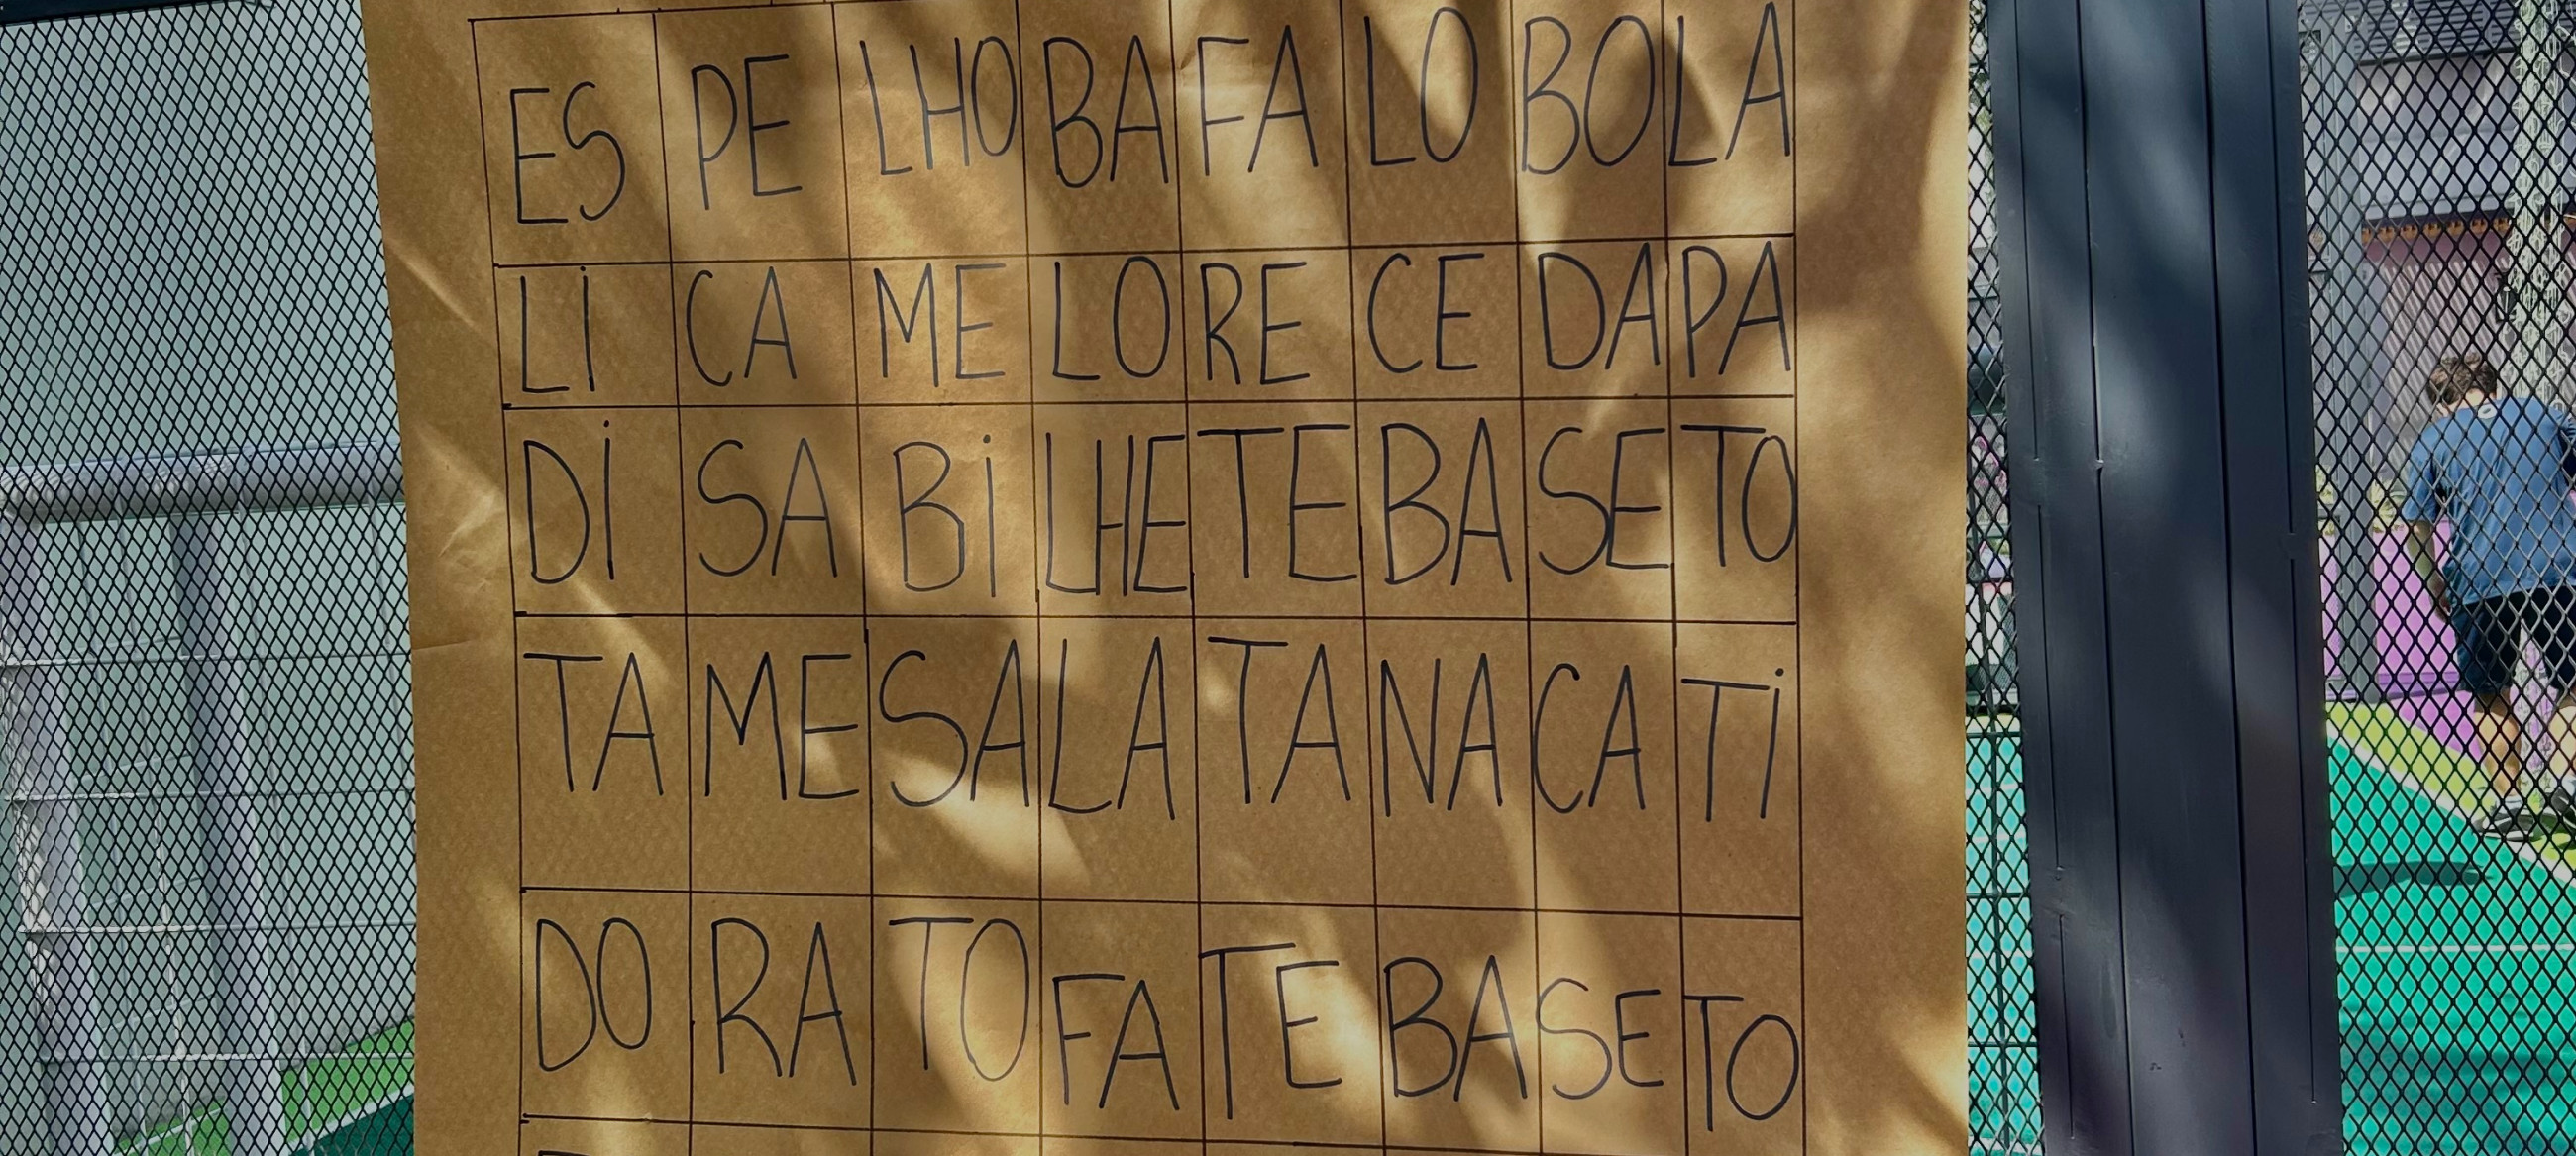 ES PE LHO BA FA LO BO LA
LI CA ME LO RE CE DA PA
DI SA BI LHE TE BA SE TO
TA ME SA LA TA NA CA TI
DO RA TO FA TE BA SE TO